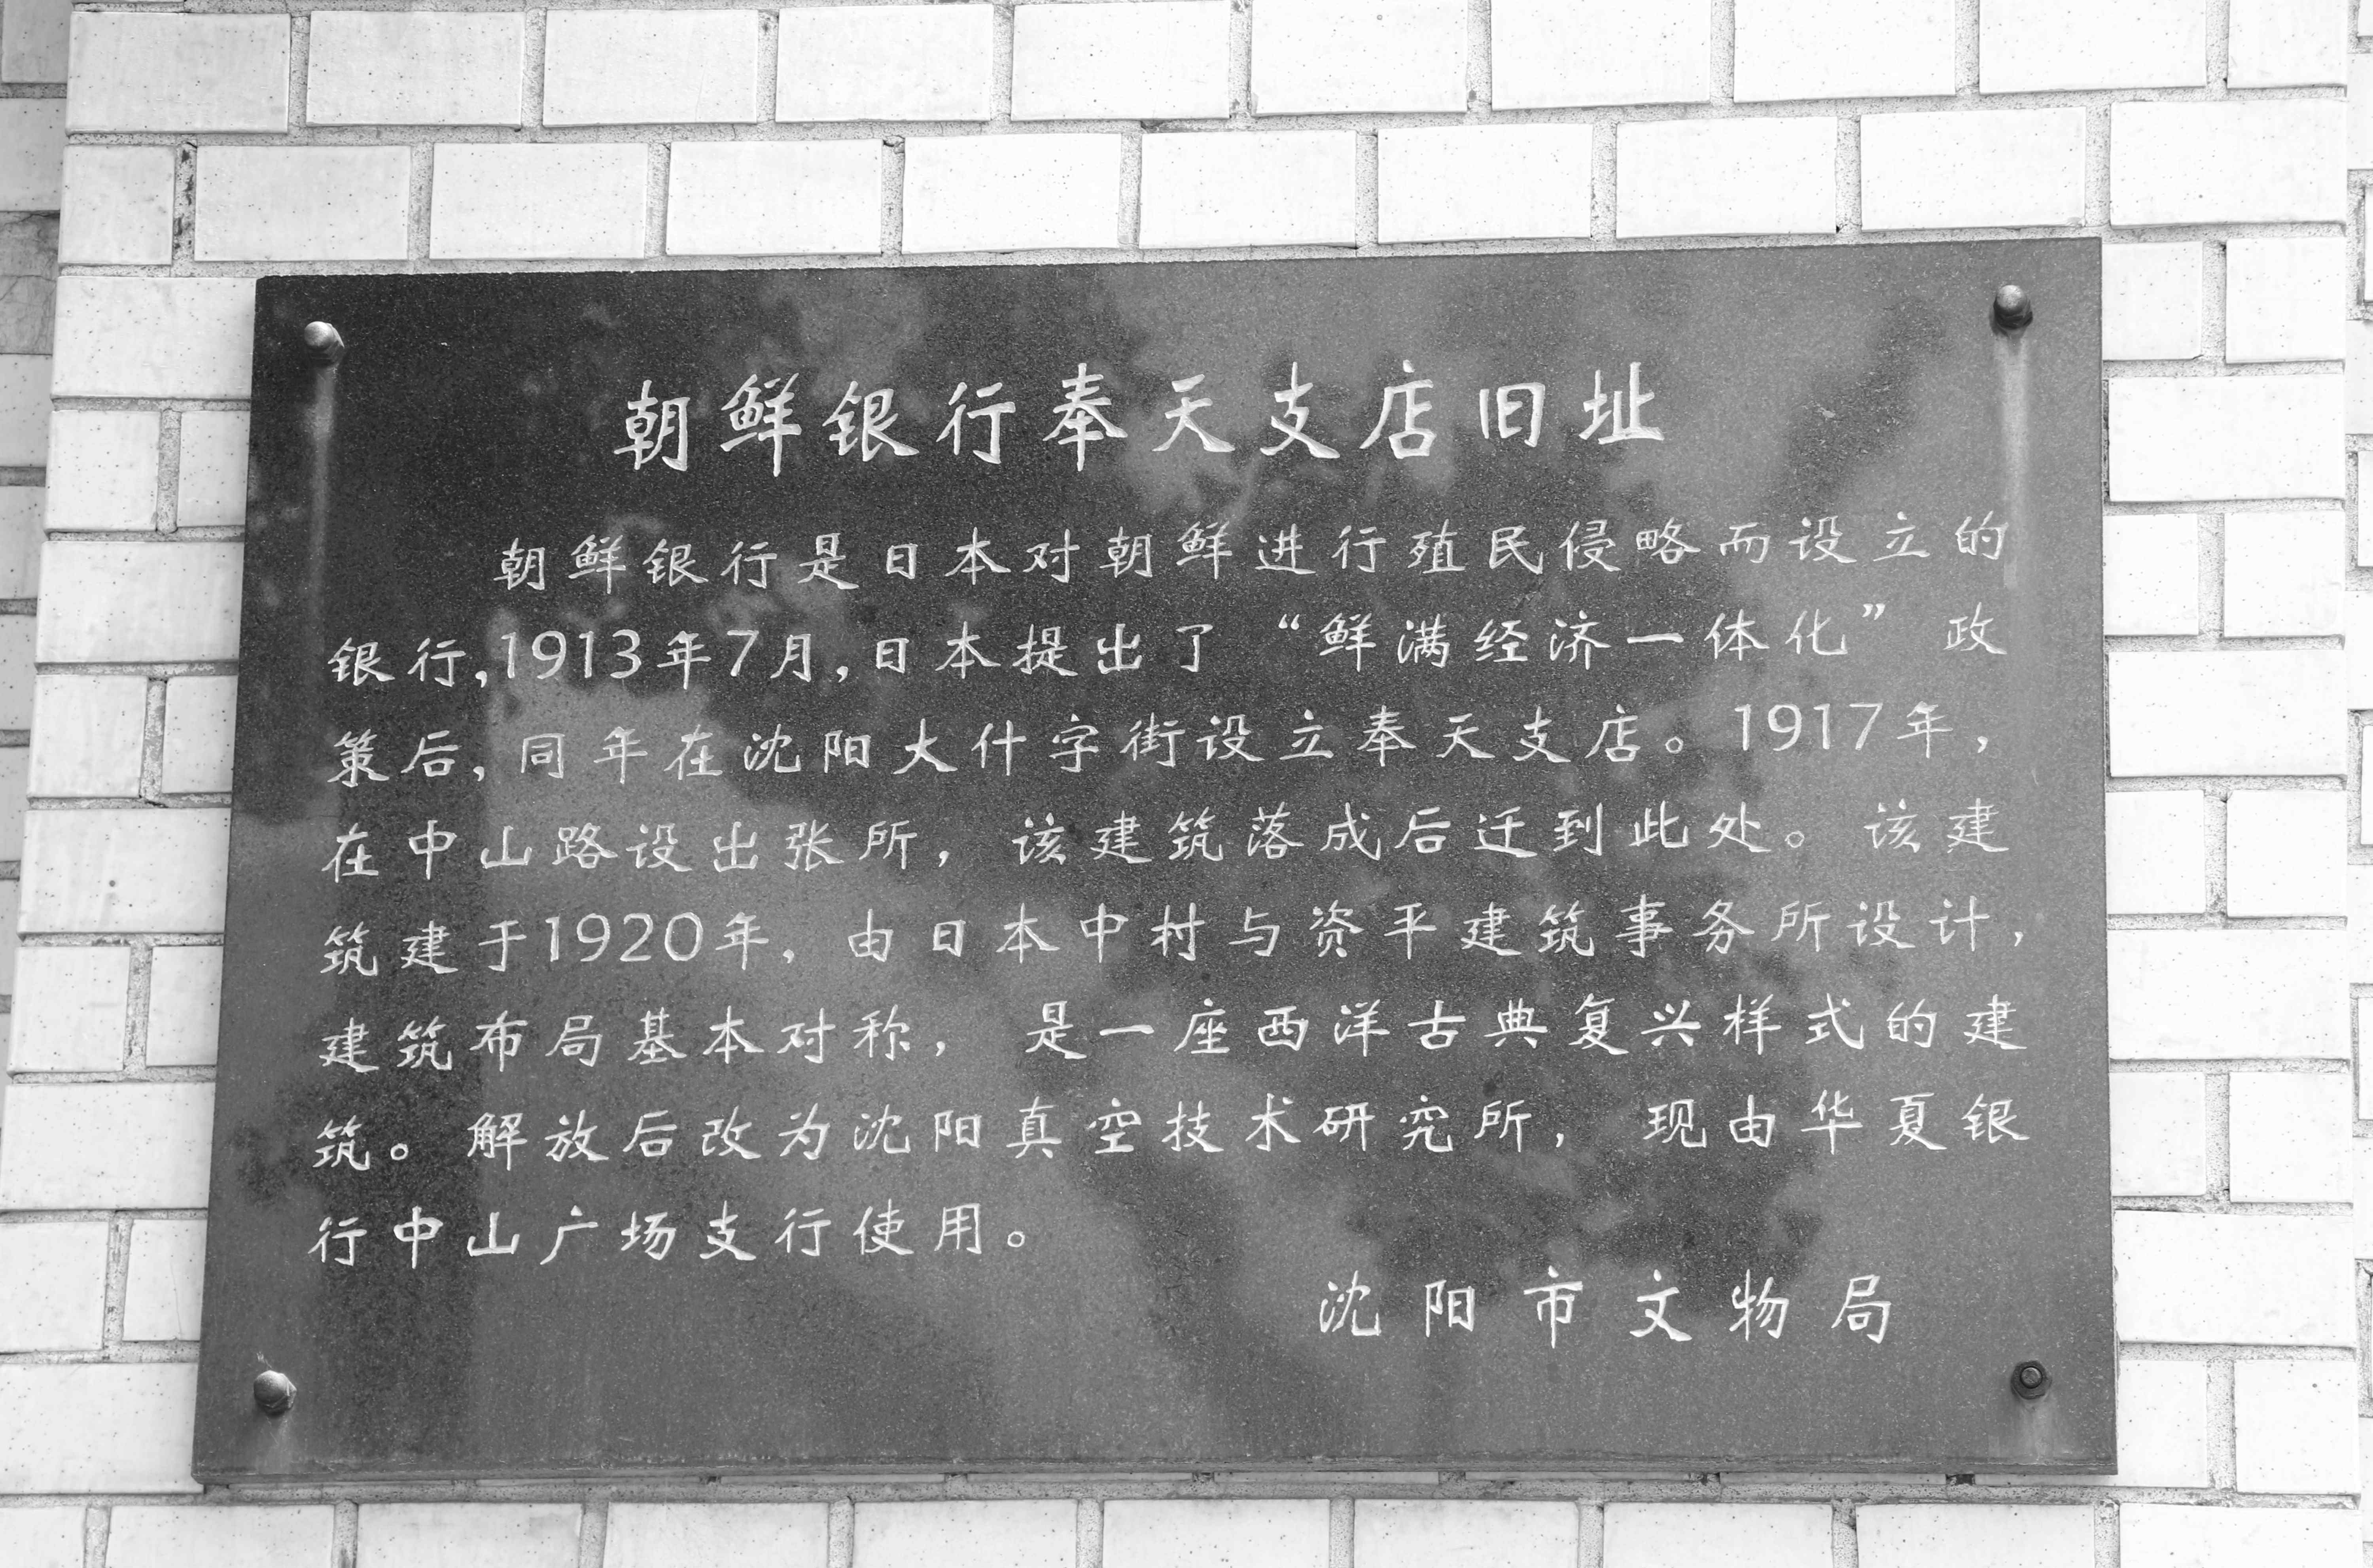 朝鲜银行奉天支店旧址
朝鲜银行是日本对朝鲜进行殖民侵略而设立的
银行,1913年7月,日本提出了“鲜满经济一体化”政
策后,同年在沈阳大什字街设立奉天支店。1917年,
在中山路设出张所,该建筑落成后迁到此处。该建
筑建于1920年,由日本中村与资平建筑事务所设计,
建筑布局基本对称,是一座西洋古典复兴样式的建
筑。解放后改为沈阳真空技术研究所,现由华夏银
行中山广场支行使用。
沈阳市文物局